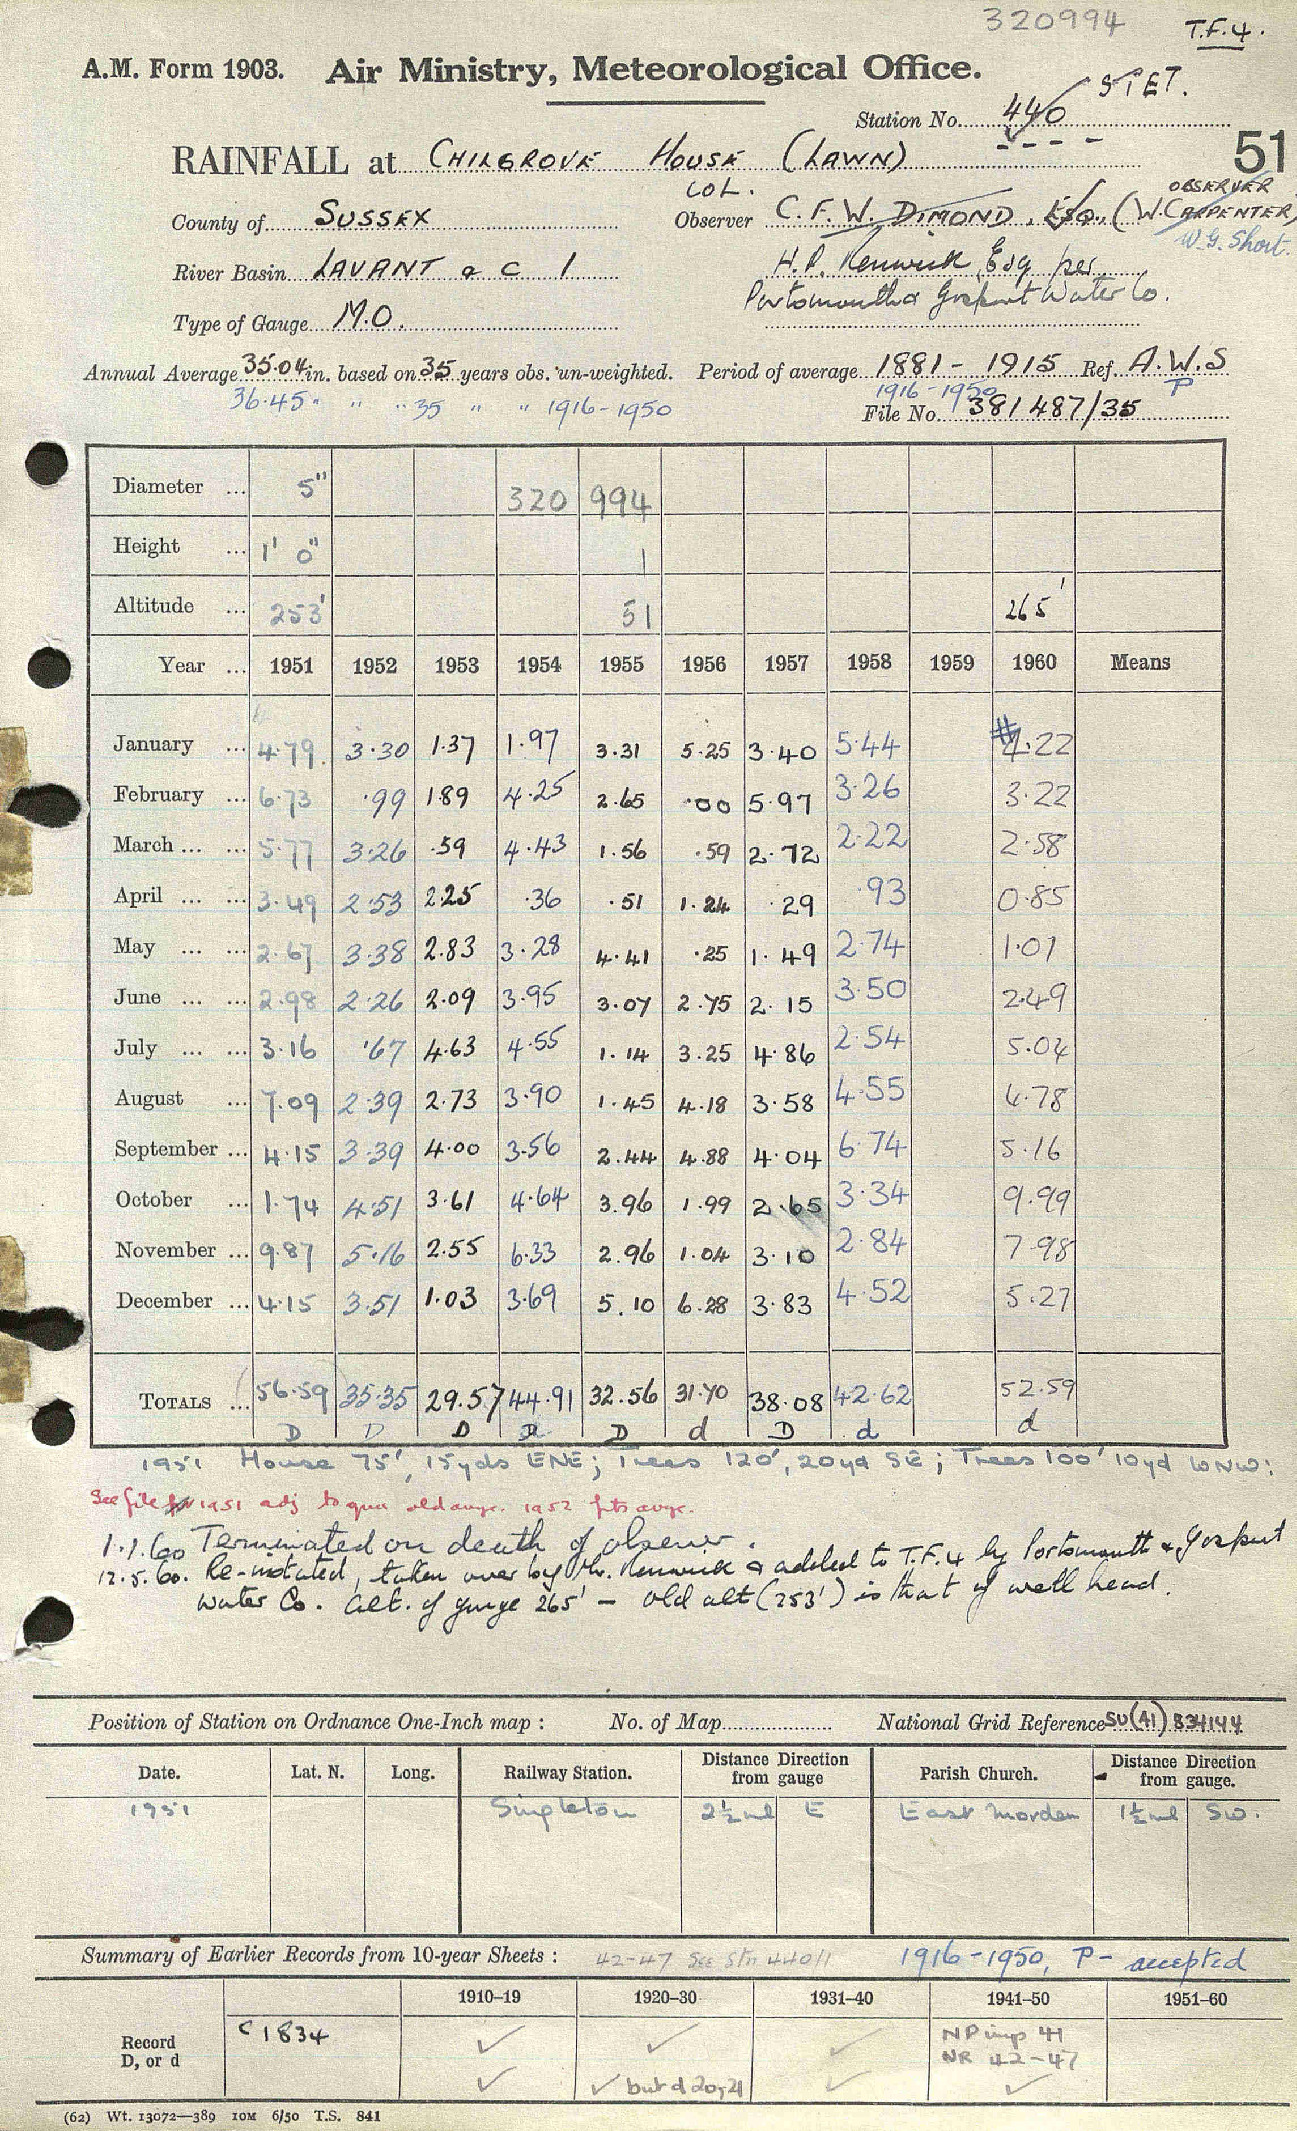 320994
T.F.4.
A.M. Form 1903. Air Ministry, Meteorological Office.
STET.
Station No. 440
51
RAINFALL at CHILGROVE HOUSE (LAWN)
COL. OBSERVER
County of SUSSEX Observer C.F.W. DIMOND, ESQ., (W. CARPENTER)
W.G. Short.
River Basin LAVANT & C 1 H.P. Renwick, Esq per
Portsmouth & Gosport Water Co.
Type of Gauge M.O.
Annual Average 35.04 in. based on 35 years obs. un-weighted. Period of average 1881 - 1915 Ref. A.W.S
36.45 " " " 35 " " 1916-1950 1916-1950 P
File No. 381487/35
Diameter ... 5" 320 994
Height ... 1' 0" 1
Altitude ... 253' 51 265'
Year ... 1951 1952 1953 1954 1955 1956 1957 1958 1959 1960 Means
January ... 4.79 3.30 1.37 1.97 3.31 5.25 3.40 5.44 4.22
February ... 6.73 .99 1.89 4.25 2.65 .00 5.97 3.26 3.22
March ... ... 5.77 3.26 .59 4.43 1.56 .59 2.72 2.22 2.58
April ... ... 3.49 2.53 2.25 .36 .51 1.24 .29 .93 0.85
May ... ... 2.67 3.38 2.83 3.28 4.41 .25 1.49 2.74 1.01
June ... ... 2.98 2.26 2.09 3.95 3.07 2.75 2.15 3.50 2.49
July ... ... 3.16 .67 4.63 4.55 1.14 3.25 4.86 2.54 5.04
August ... 7.09 2.39 2.73 3.90 1.45 4.18 3.58 4.55 4.78
September ... 4.15 3.39 4.00 3.56 2.44 4.88 4.04 6.74 5.16
October ... 1.74 4.51 3.61 4.64 3.96 1.99 2.65 3.34 9.99
November ... 9.87 5.16 2.55 6.33 2.96 1.04 3.10 2.84 7.98
December ... 4.15 3.51 1.03 3.69 5.10 6.28 3.83 4.52 5.27
TOTALS ... 56.59 35.35 29.57 44.91 32.56 31.70 38.08 42.62 52.59
D D D D D d D d d
1951 House 75', 15yds ENE; Trees 120', 20yd SE; Trees 100' 10yd WNW:
See file 1951 adj to old avge. 1952 fits avge.
1.1.60 Terminated on death of observer.
12.5.60. Re-instated, taken over by Mr. Renwick & added to T.F.4 by Portsmouth & Gosport
Water Co. Alt. of gauge 265' - old alt (253') is that of well head.
Position of Station on Ordnance One-Inch map : No. of Map National Grid Reference SU(41) 834144
Date. Lat. N. Long. Railway Station. Distance Direction from gauge Parish Church. Distance Direction from gauge.
1951 Singleton 2½ml E East Marden 1½ml SW.
Summary of Earlier Records from 10-year Sheets : 42-47 See Stn 440/1 1916-1950, P - accepted
1910–19 1920–30 1931–40 1941–50 1951–60
Record D, or d c 1834 ✓ ✓ ✓ NP imp 41
NR 42-47
✓ ✓ but d 20, 21 ✓ ✓
(62) Wt. 13072—389 10M 6/50 T.S. 841